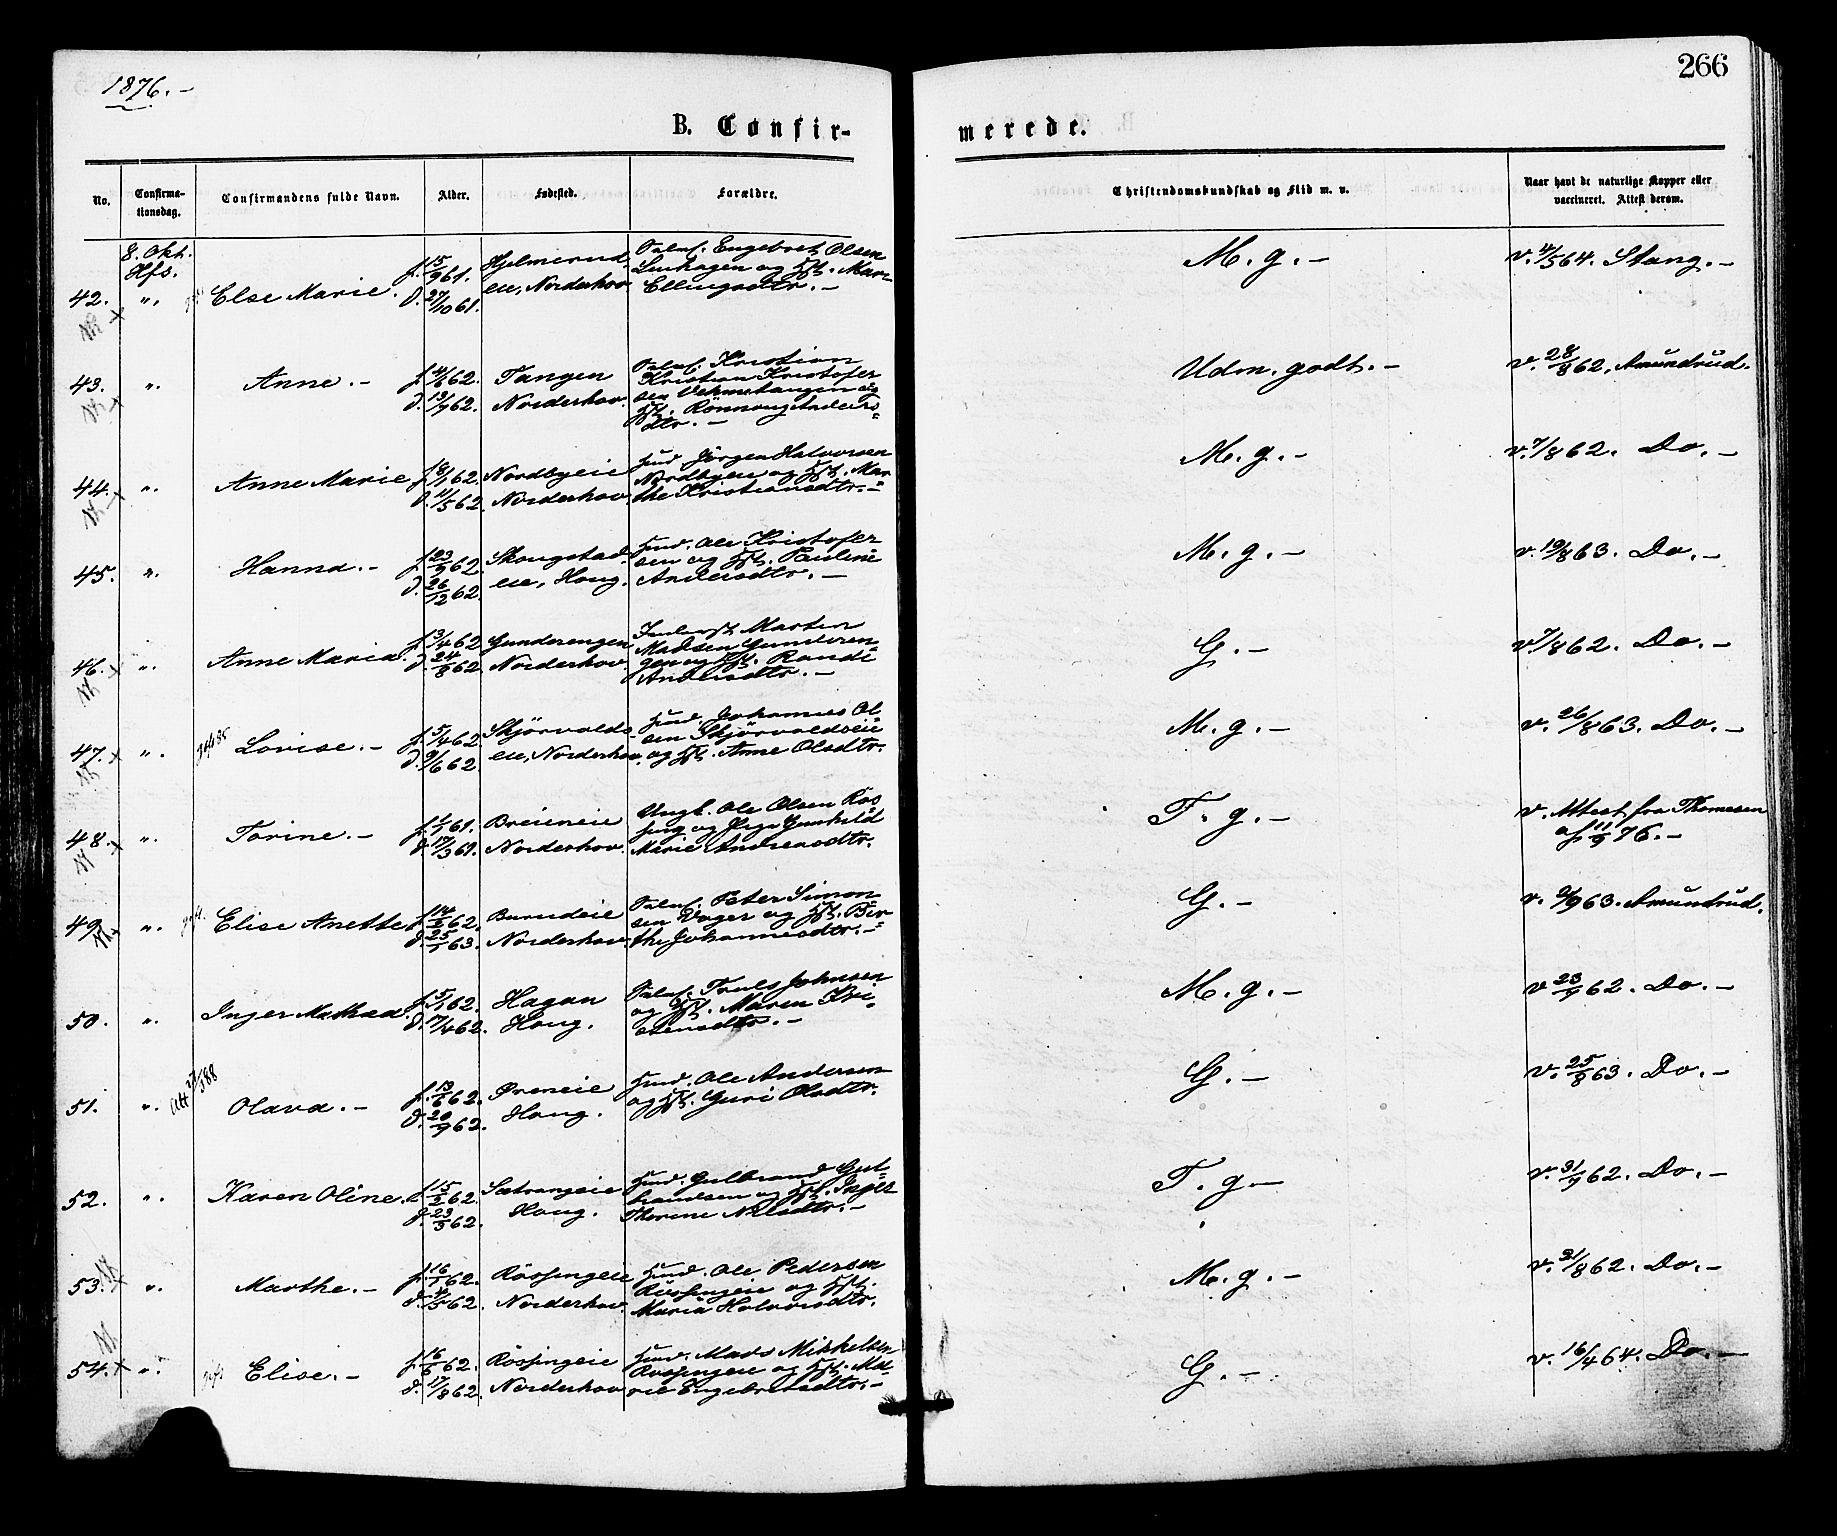 1876.-
266
B. Confir-
merede.
No.
Confirma-
tionsdag.
Confirmandens fulde Navn.
Alder.
Fødested.
Forældre.
Christendomskundskab og Flid m. v.
Naar havt de naturlige Kopper eller
vaccineret. Attest derom.
8. Okt.
Hfs.
42. „. Else Marie. f. 15/9 61. d. 27/10 61. Hjelmerud-
eie, Norderhov
Engebret Olsen
og Hst. Mari
Ellingsdtr.-
M. g. -
v. 4/5 64. Stang.-
43. „. Anne.- f. 4/6 62. d. 13/9 62. Tangen
Norderhov.
Kristian
Kristian Kristofer
sen Vekmetangen og
Hst. Rönnoug Anders
dtr.-
Udm. godt.-
v. 28/8 62. Amundrud.
44. „. Anne Marie f. 8/1 62. d. 11/5 62. Nordbyeie
Norderhov.
Hmd. Jörgen Halvorsen
Nordbyeie og Hst. Mar
the Kristiansdtr.-
M. g.-
v. 7/8 62. Do.-
45. „. Hanna.- f. 23/9 62. d. 26/12 62. Skougstad-
eie, Houg.
Hmd. Ole Kristofer
sen og Hst. Pauline
Andersdtr.-
M. g.-
v. 19/8 63. Do.-
46. „. Anne Maria. f. 3/4 62 d. 24/8 62. Gunderengen
Norderhov.
Morten
Madsen Gunderen-
gen og Hst. Randi
Andersdtr.-
G.-
v. 7/8 62. Do.-
47. „. Lovise.- f. 5/4 62. d. 9/6 62. Skjörvolds-
eie, Norderhov
Hmd. Johannes Ol-
sen Skjörvoldseie
og Hst. Anne Olsdtr.
M. g.-
v. 26/8 63. Do.-
48. „. Torine.- f. 61. d. 17/3 61. Breieneie
Norderhov.
Ungk. Ole Olsen Ros
sing og Pige Gunhild
Marie Andreasdtr.
T. g.-
v. Attest fra Thomesen
af 11/9 76.-
49. „. Elise Anette f. 14/6 62. d. 25/1 63. Burudeie
Norderhov.
Peter Simon-
sen Vager og Hst. Bir
the Johannesdtr.-
G.-
v. 63. Amundrud.
50. „. Inger Mathea. f. 5/1 62. d. 17/4 62. Hagan
Houg.
Truls Johnsen
og Hst. Maren Kri-
stensdtr.-
M. g.-
v. 23/9 62. Do.-
51. „. Att 88 Olava.- f. 13/6 62. d. 20/9 62. Öreneie
Houg.
Hmd. Ole Andersen
og Hst. Guri Olsdtr.
G.-
v. 25/8 63. Do.-
52. „. Karen Oline. f. 15/2 62. d. 23/3 62. Sætrangeie
Houg.
Hmd. Gulbrand Gul-
brandsen og Hst. Inger
Thorine Nilsdtr.-
T. g.-
v. 31/9 62. Do.-
53. „. Marthe.- f. 16/1 62. d. 4/5 62. Rössingeie
Norderhov.
Hmd. Ole Pedersen
Rössingeie og Hst.
Maria Halvorsdtr.
M. g.-
v. 21/8 62. Do.-
54. „. Elise.- f. 16/6 62. d. 17/8 62. Rössingeie
Norderhov
Hmd. Mads Mikkelsen
Rössingeie og Hst. Ma-
rie Engebretsdtr.-
G.-
v. 16/4 64. Do.-